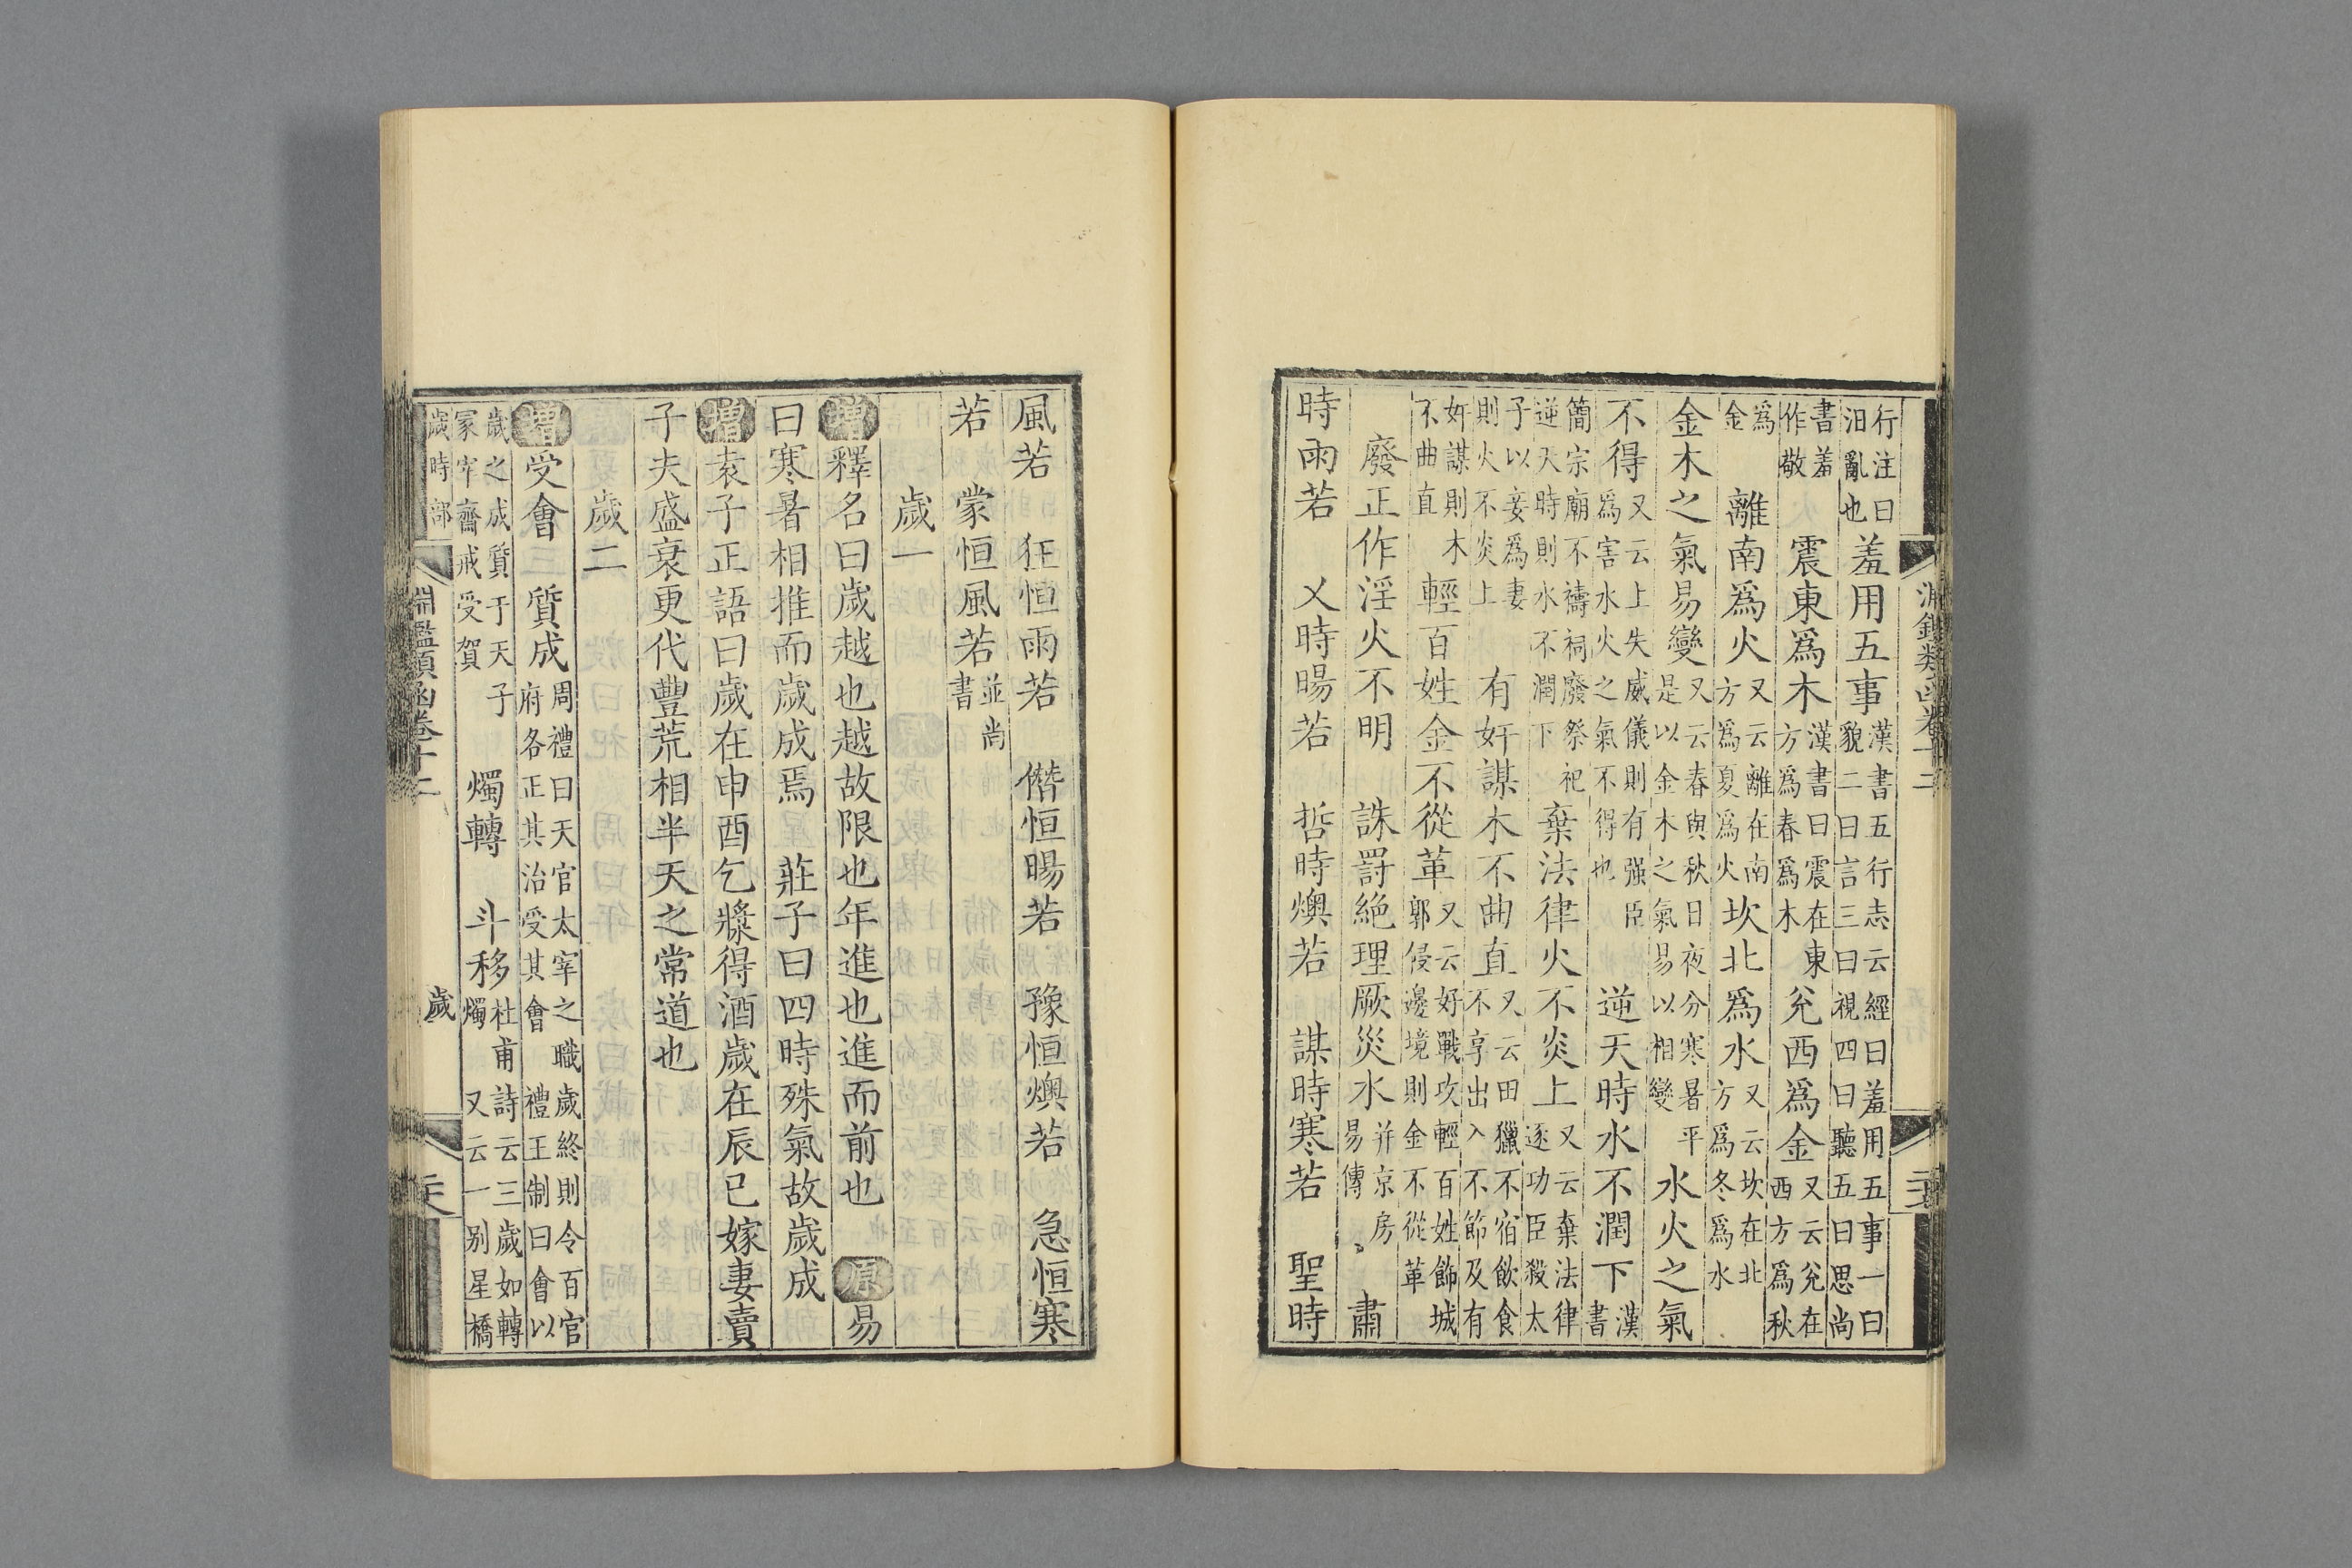 行注曰汨亂也羞用五事漢書五行志云經曰羞用五事一曰貌二曰言三曰視四曰聽五曰思尚
書羞作敬震東爲木漢書曰震在東方爲春爲木兊西爲金又云兊在西方爲秋
爲金離南爲火又云離在南方爲夏爲火坎北爲水又云坎在北方爲冬爲水
金木之氣易變又云春與秋日夜分寒暑平是以金木之氣易以相變水火之氣
不得又云上失威儀則有强臣爲害水火之氣不得也逆天時水不潤下漢書
簡宗廟不禱祠廢祭祀逆天時則水不潤下棄法律火不炎上又云棄法律逐功臣殺太
子以妾爲妻則火不炎上有奸謀木不曲直又云田獵不宿飲食不享出入不節及有
奸謀則木不曲直輕百姓金不從革又云好戰攻輕百姓飾城郭侵邊境則金不從革
廢正作淫火不明　誅罰絶理厥災水并京房易傳　肅
時雨若　乂時暘若　哲時燠若　謀時寒若　聖時
風若　狂恒雨若　僭恒暘若　豫恒燠若　急恒寒
若　蒙恒風若並尚書
歲一
增釋名曰歲越也越故限也年進也進而前也　原易
曰寒暑相推而歲成焉　莊子曰四時殊氣故歲成
增袁子正語曰歲在申酉乞漿得酒歲在辰巳嫁妻賣
子夫盛衰更代豐荒相半天之常道也
歲二
增受會　質成周禮曰天官太宰之職歲終則令百官府各正其治受其會　禮王制曰會以
歲之成質于天子冢宰齋戒受賀　燭轉　斗移杜甫詩云三歲如轉燭　又云一别星橋
歲時部
淵鑑類函卷十二
歲